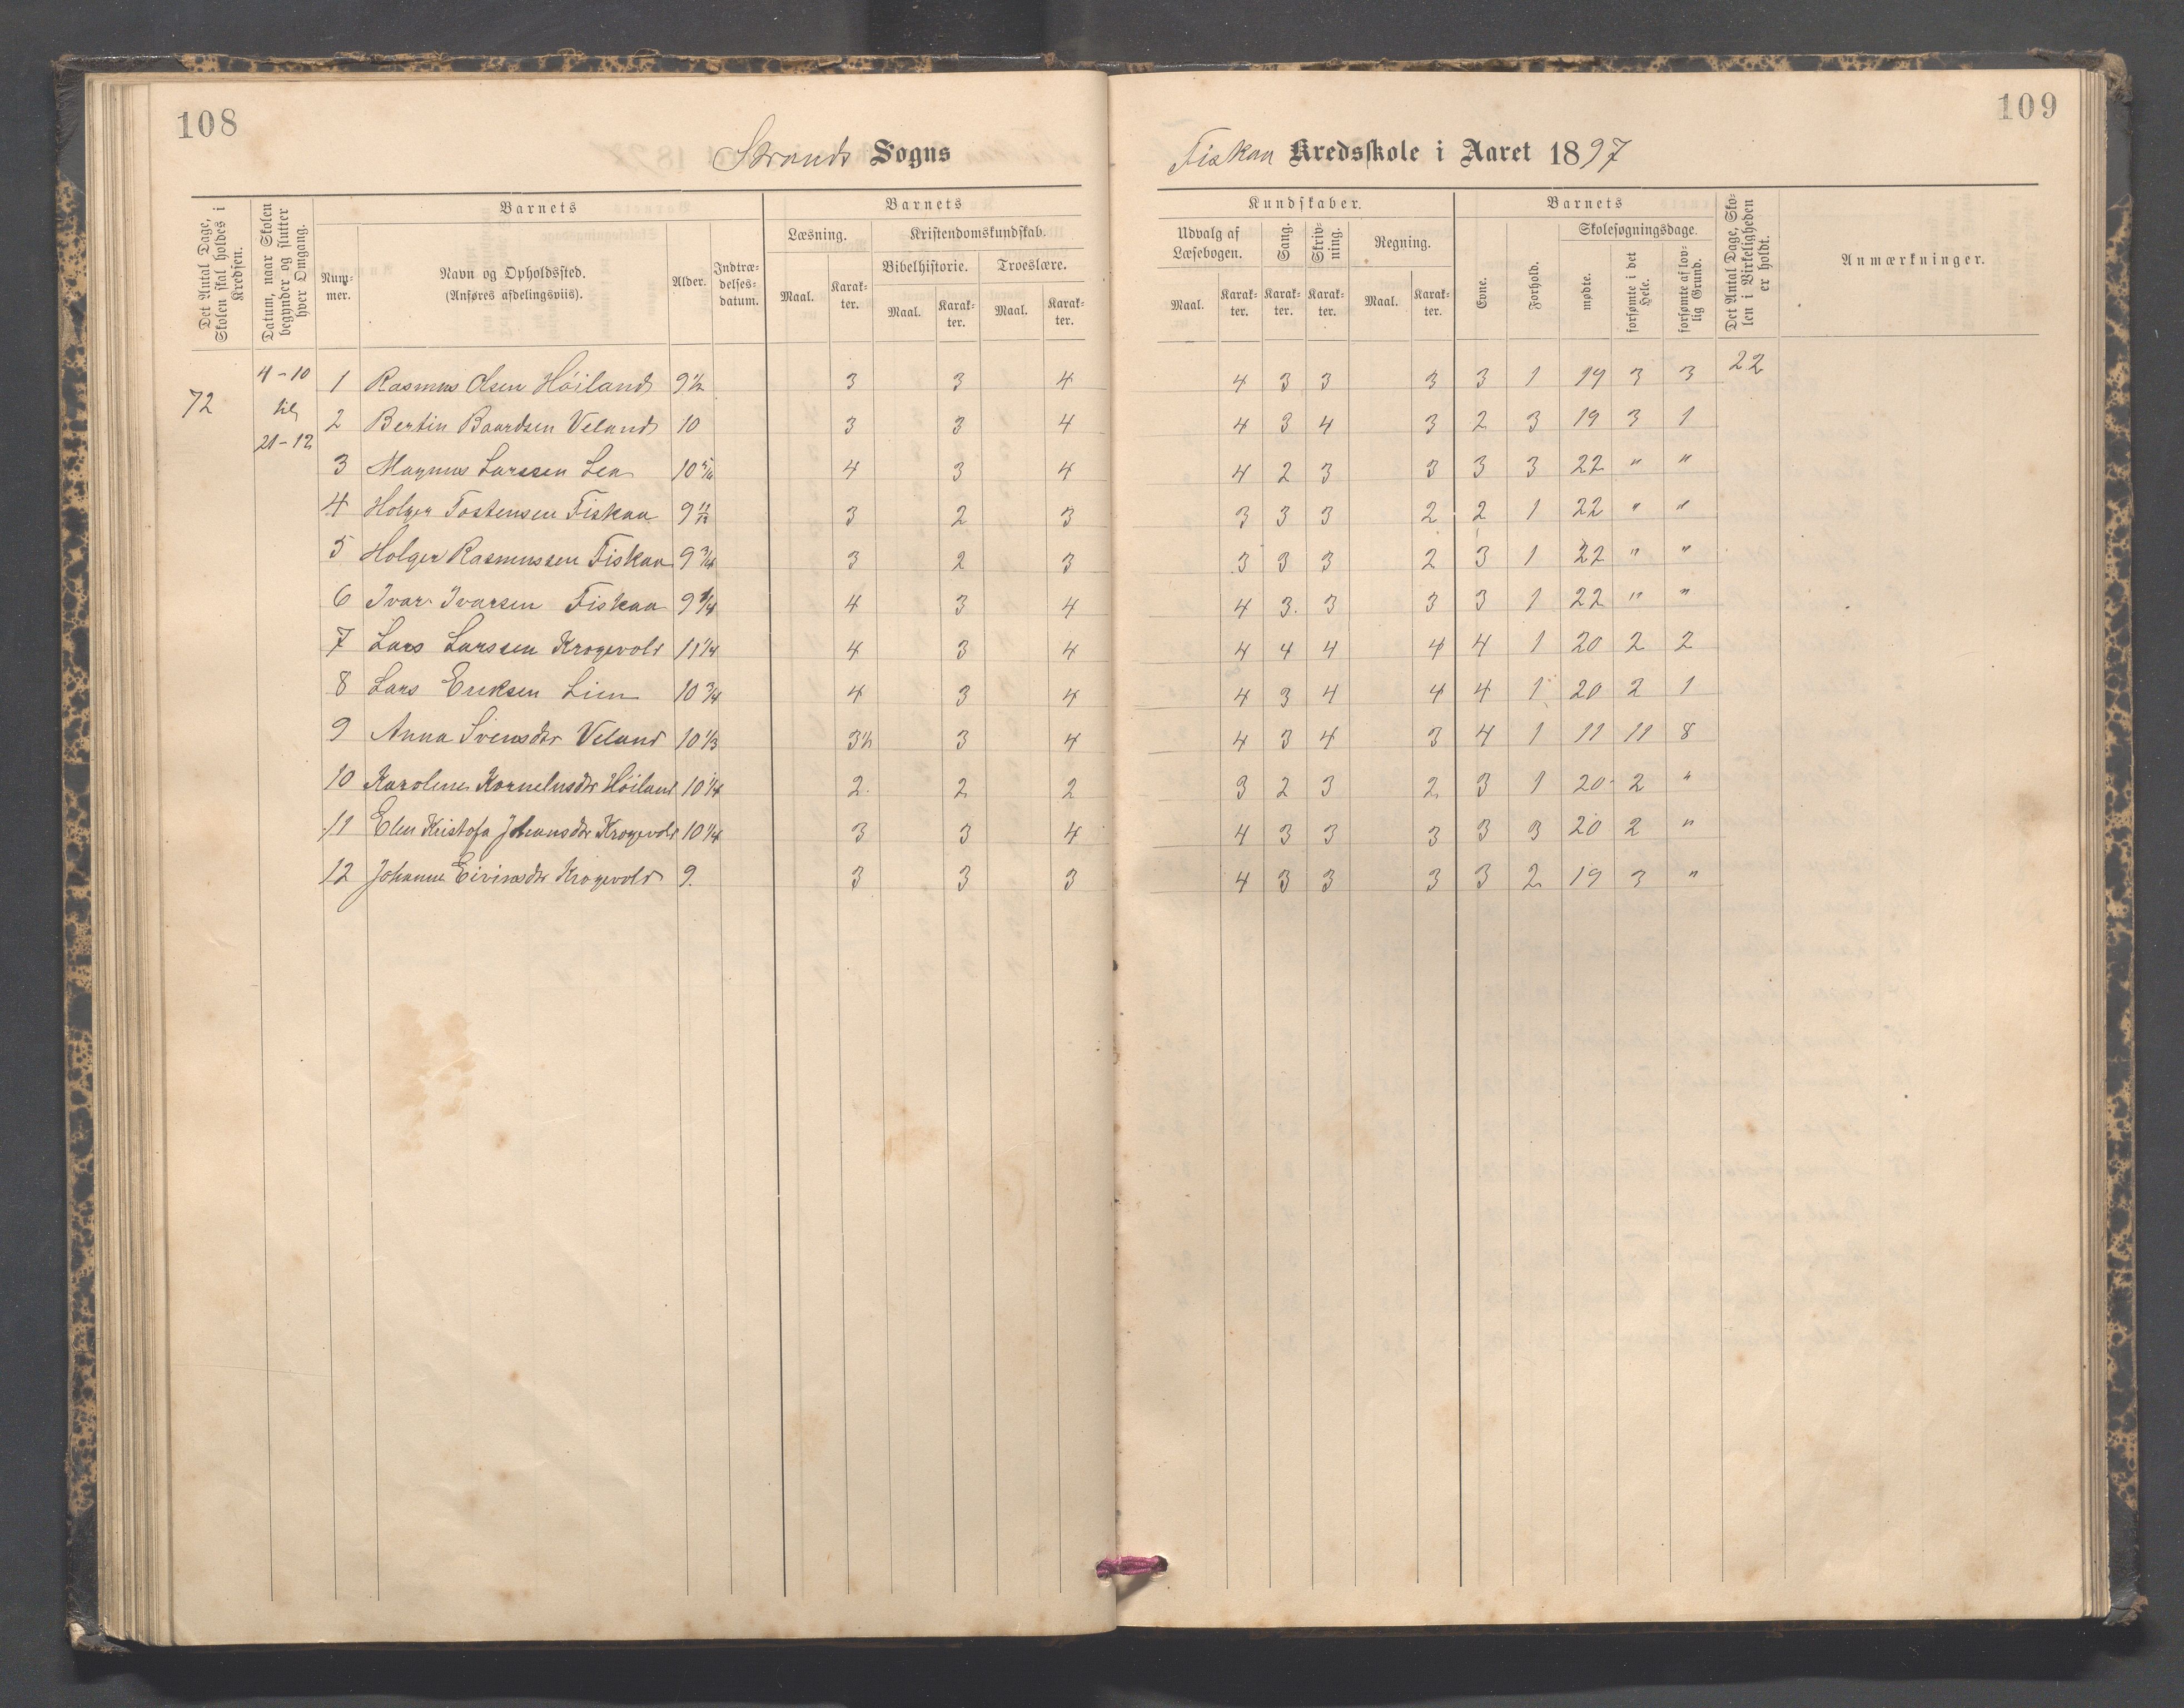 108
109
Strands Sogns
Fiskaa Kredsskole i Aaret 1897
Det Antal Dage, Skolen skal holdes i Kredsen.
Datum, naar Skolen begynder og slutter hver Omgang.
Barnets
Barnets
Kundskaber.
Barnets
Det Antal Dage, Skolen i Virkeligheden er holdt.
Anmærkninger.
Nummer.
Navn og Opholdssted.
(Anføres afdelingsviis).
Alder.
Indtrædelsesdatum.
Læsning.
Kristendomskundskab.
Bibelhistorie.
Troeslære.
Udvalg af Læsebogen.
Sang.
Skrivning.
Regning.
Evne.
Forhold.
Skolesøgningsdage.
mødte.
forsømte i det Hele.
forsømte af lovlig Grund.
Maal. Karakter. Maal. Karakter. Maal. Karakter. Maal. Karakter. Karakter. Karakter. Maal. Karakter.
72
4-10
til
21-12
1 Rasmus Olsen Höiland 9 1/2 3 3 4 4 3 3 3 3 1 19 3 3 22
2 Bertin Baardsen Veland 10 3 3 4 4 3 4 3 2 3 19 3 1
3 Magnus Larssen Lea 10 4 3 4 4 2 3 3 3 3 22 " "
4 Holger Tostensen Fiskaa 9 11/12 3 2 3 3 3 3 2 2 1 22 " "
5 Holger Rasmussen Fiskaa 9 3/4 3 2 3 3 3 3 2 3 1 22 " "
6 Ivar Ivarsen Fiskaa 9 1/4 4 3 4 4 3. 3 3 3 1 22 " "
7 Lars Larssen Krogevold 11 1/4 4 3 4 4 4 4 4 4 1 20 2 2
8 Lars Eriksen Lien 10 3/4 4 3 4 4 3 4 4 4 1 20 2 1
9 Anna Svensdtr Veland 10 1/3 3 1/2 3 4 4 3 4 3 4 1 11 11 8
10 Karoline Kornelusdtr Höiland 10 1/4 2. 2 2 3 2 3 2 3 1 20 2 "
11 Elen Kristofa Johansdtr Krogevold 10 1/4 3 3 4 4 3 3 3 3 3 20 2 "
12 Johanne Eivindsdtr Krogevold 9. 3 3 3 4 3 3 3 3 2 19 3 "